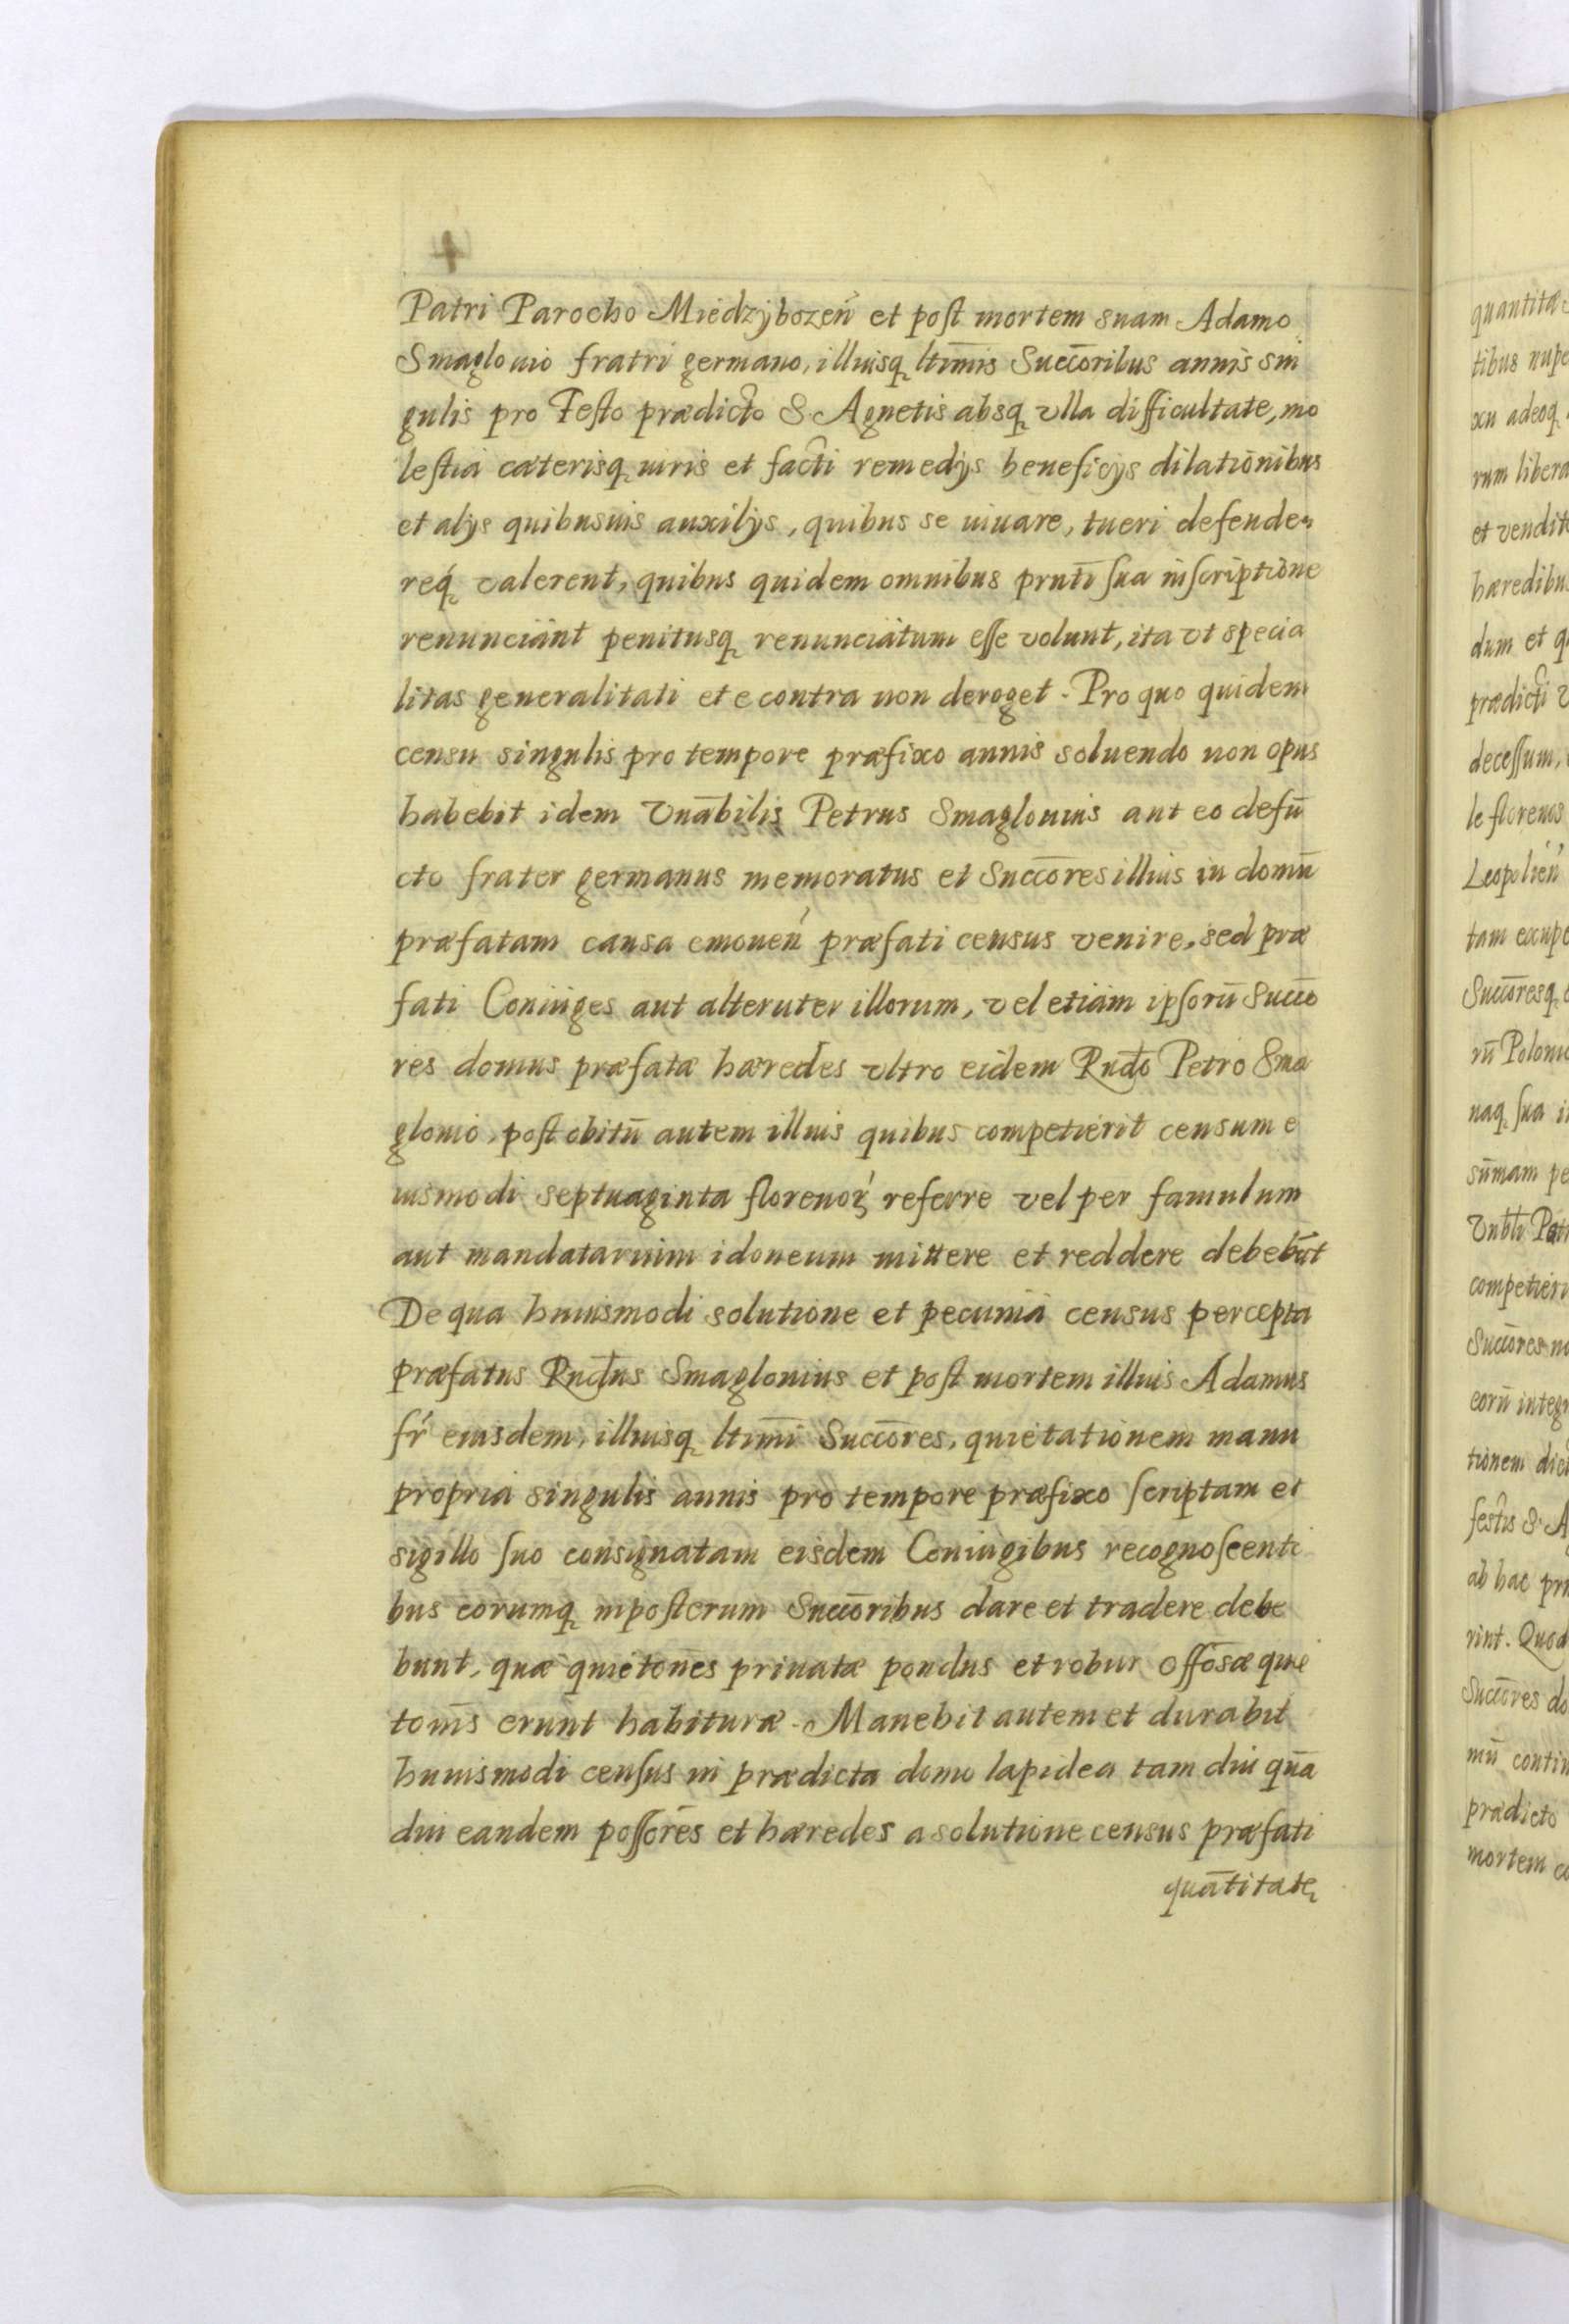 4
Patri Parocho Miedzÿbozen̄ et post mortem suam Adamo
Smaglouio fratri germano, illiusq ltim̄is Succ̄oribus annis sin
gulis pro Festo prædicto S. Agnetis absq vlla difficultate, mo
lestia cæterisq iuris et facti remedÿs beneficÿs dilationibus
et alÿs quibusuis auxilÿs, quibus se iuuare, tueri defende
req valerent, quibus quidem omnibus prnti sua inscriptione
renunciant penitusq renunciatum esse volunt, ita vt specia
litas generalitati et e contra non deroget. Pro quo quidem
censu singulis pro tempore præfixo annis soluendo non opus
habebit idem Vnābilis Petrus Smaglouius aut eo defū
cto frater germanus memoratus et Succ̄ores illius in domū
præfatam causa emouen̄ præfati census venire, sed præ
fati Coniuges aut alteruter illorum, vel etiam ipsorū Succo
res domus præfatæ hæredes vltro eidem Rndo Petro Sma
glouio, post obitū autem illius quibus competierit censum e
iusmodi septuaginta florenoꝝ referre vel per famulum
aut mandatarium idoneum mittere et reddere debebūt
De qua huiusmodi solutione et pecunia census percepta
præfatus Rndus Smaglouius et post mortem illius Adamus
fr̄ eiusdem, illiusq ltim̄i Succ̄ores, quietationem manu
propria singulis annis pro tempore præfixo scriptam et
sigillo suo consignatam eisdem Coniugibus recognoscenti
bus eorumq inposterum Succ̄oribus dare et tradere debe
bunt, quæ quietōnes priuatæ pondus et robur offōsæ quie
tōnis erunt habituræ. Manebit autem et durabit
huiusmodi census in prædicta domo lapidea tam diu quā
diu eandem possōres et hæredes a solutione census præfati
quātitate
quantitæ
tibus nupe
xu adeoq
rum libera
et vendit
hæredibus
dum et q
prædicti v
decessum,
le florenos
Leopolien̄
tam
Succ̄oresq
rū Polono
naq sua i
sūmam pe
Vnbli Patr
competieri
Succ̄ores
eorū integr
tionem
festis S. A
ab hac prn
rint. Quod
Succ̄ores do
mū contin
prædicto
mortem